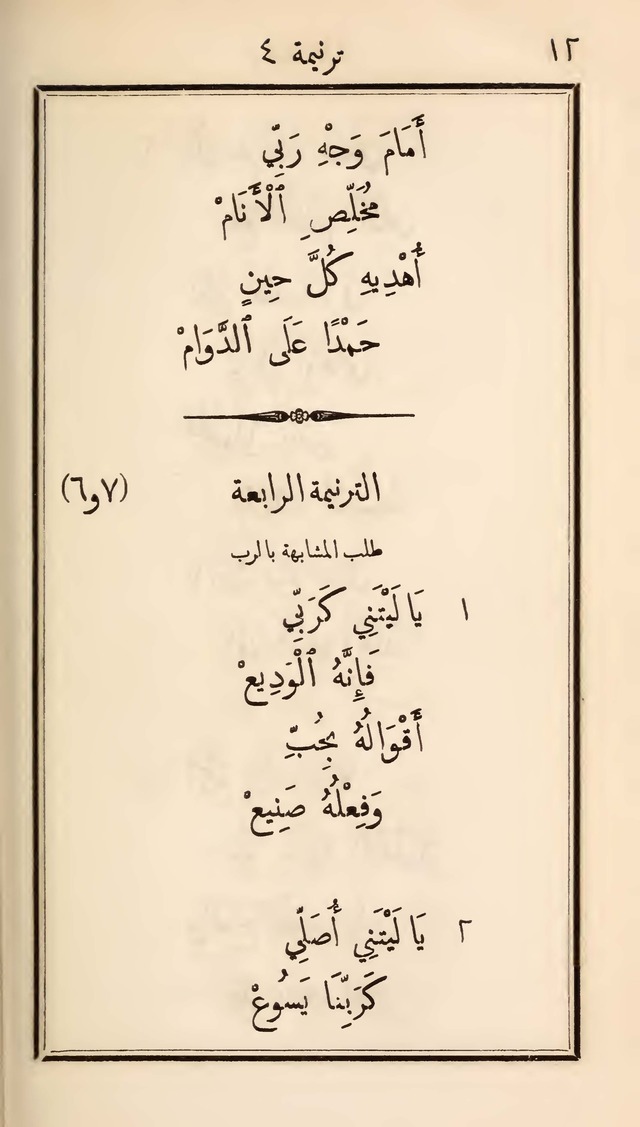 ١٢
ترنيمة ٤
أَمَامَ وَجْهِ رَبِّي
مُخَلِّصِ ٱلْأَنَامْ
أُهْدِيهِ كُلَّ حِينٍ
حَمْدًا عَلَى ٱلدَّوَامْ
الترنيمة الرابعة (٧و٦)
طلب المشابهة بالرب
١ يَا لَيْتَنِي كَرَبِّي
فَإِنَّهُ ٱلْوَدِيعْ
أَقْوَالُهُ بِحُبٍّ
وَفِعْلُهُ صَنِيعْ
٢ يَا لَيْتَنِي أُصَلِّي
كَرَبِّنَا يَسُوعْ